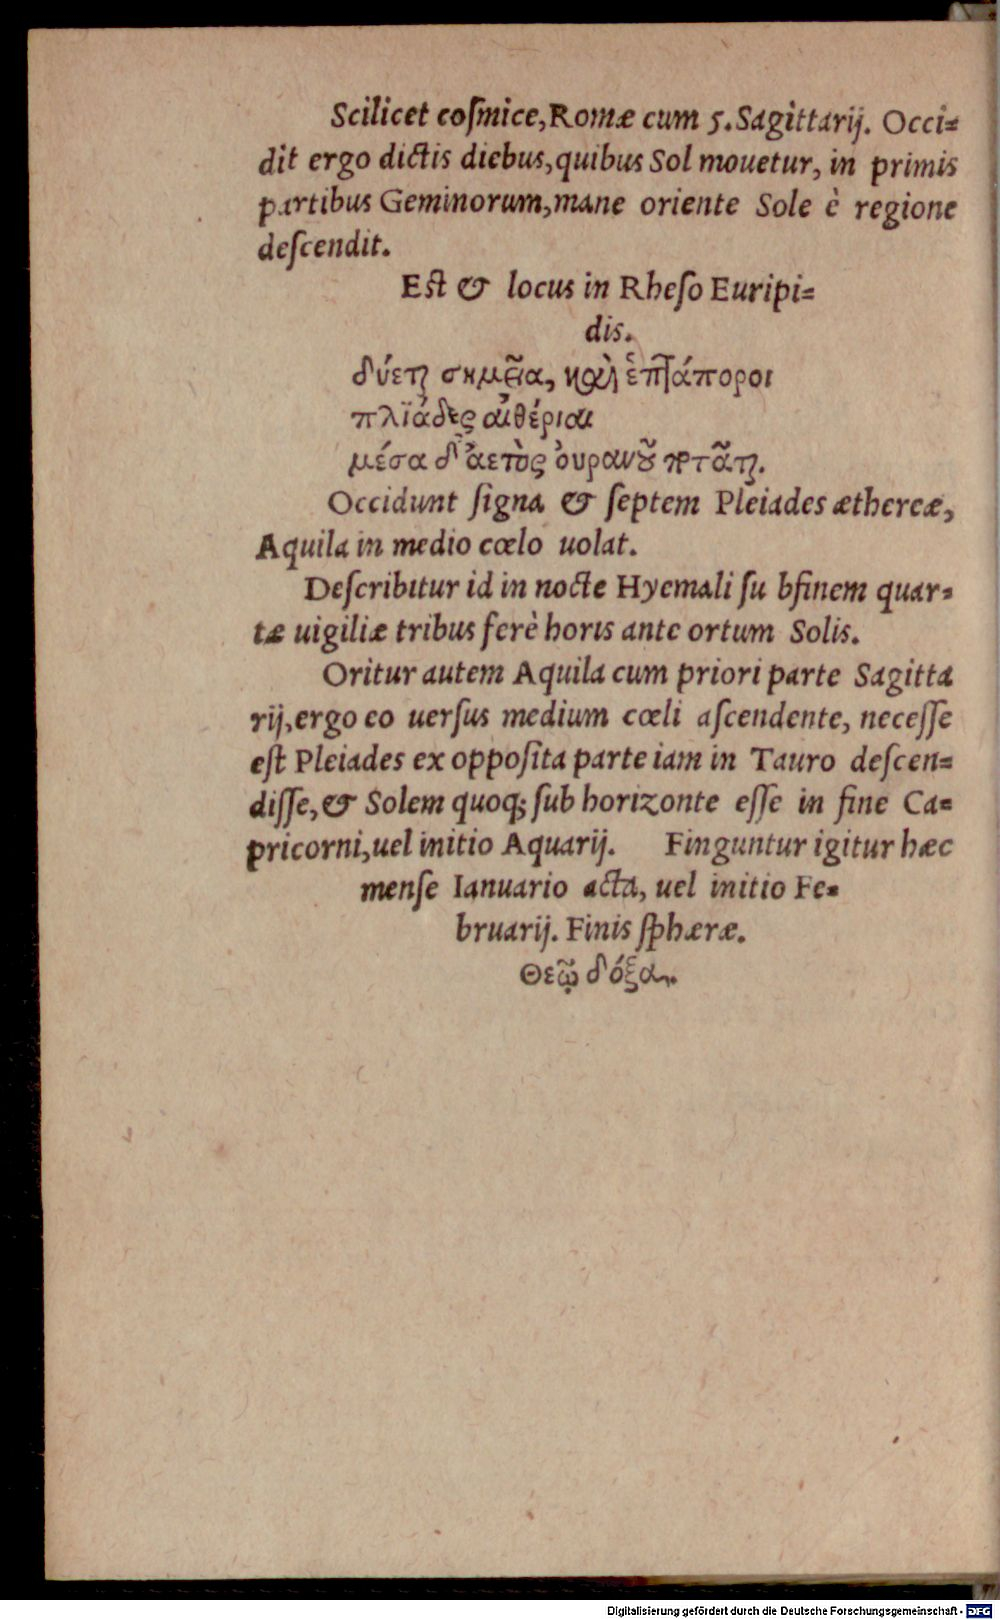 Scilicet coſmice,Romæ cum 5.Sagittarij. Occi=
dit ergo dictis diebus,quibus Sol mouetur, in primis
partibus Geminorum,mane oriente Sole è regione
deſcendit.
Eſt & locus in Rheſo Euripi=
dis.
δύεται σημεῖα, καὶ ἑπτάποροι
πλϊάδες αἰθέριαι
μέσα δ' ἀετὸς ὀυρανοῦ ποτᾶται.
Occidunt ſigna & ſeptem Pleiades æthereæ,
Aquila in medio cœlo uolat.
Deſcribitur id in nocte Hyemali ſu bfinem quar=
tæ uigiliæ tribus ferè horis ante ortum Solis.
Oritur autem Aquila cum priori parte Sagitta
rij,ergo eo uerſus medium cœli aſcendente, neceſſe
eſt Pleiades ex oppoſita parte iam in Tauro deſcen=
diſſe,& Solem quoq; ſub horizonte eſſe in fine Ca=
pricorni,uel initio Aquarij. Finguntur igitur hæc
menſe Ianuario acta, uel initio Fe=
bruarij. Finis ſphæræ.
Θεῷ δόξα.
Digitalisierung gefördert durch die Deutsche Forschungsgemeinschaft - DFG